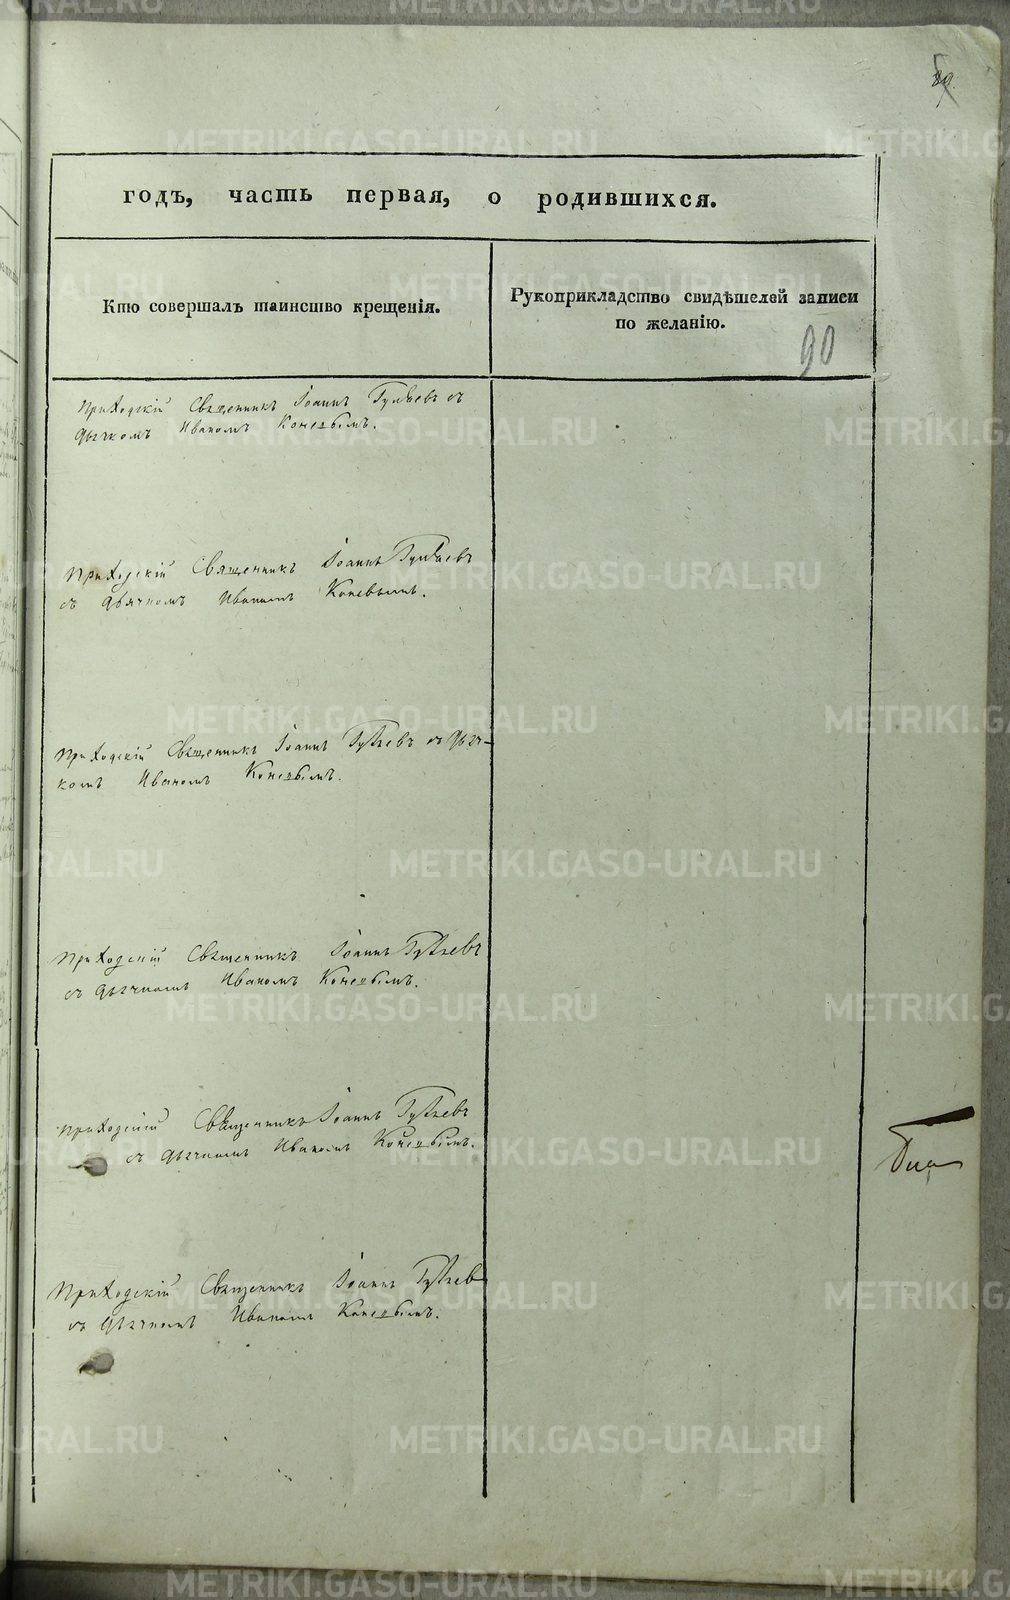 METRIKI.GASO-URAL.RU
годъ, часть первая, о родившихся.
Кто совершалъ таинство крещенія.
Рукоприкладство свидѣтелей записи
по желанію.
90
Приходскій Священникъ Іоаннъ съ
Дьячкомъ Иваномъ Коневымъ.
Приходскій Священникъ Іоаннъ
съ Дьячкомъ Иваномъ Коневымъ.
Приходскій Священникъ Іоаннъ съ Дьяч-
комъ Иваномъ Коневымъ.
Приходскій Священникъ Іоаннъ
съ Дьячкомъ Иваномъ Коневымъ.
Приходскій Священникъ Іоаннъ
съ Дьячкомъ Иваномъ Коневымъ.
Приходскій Священникъ Іоаннъ
съ Дьячкомъ Иваномъ Коневымъ.